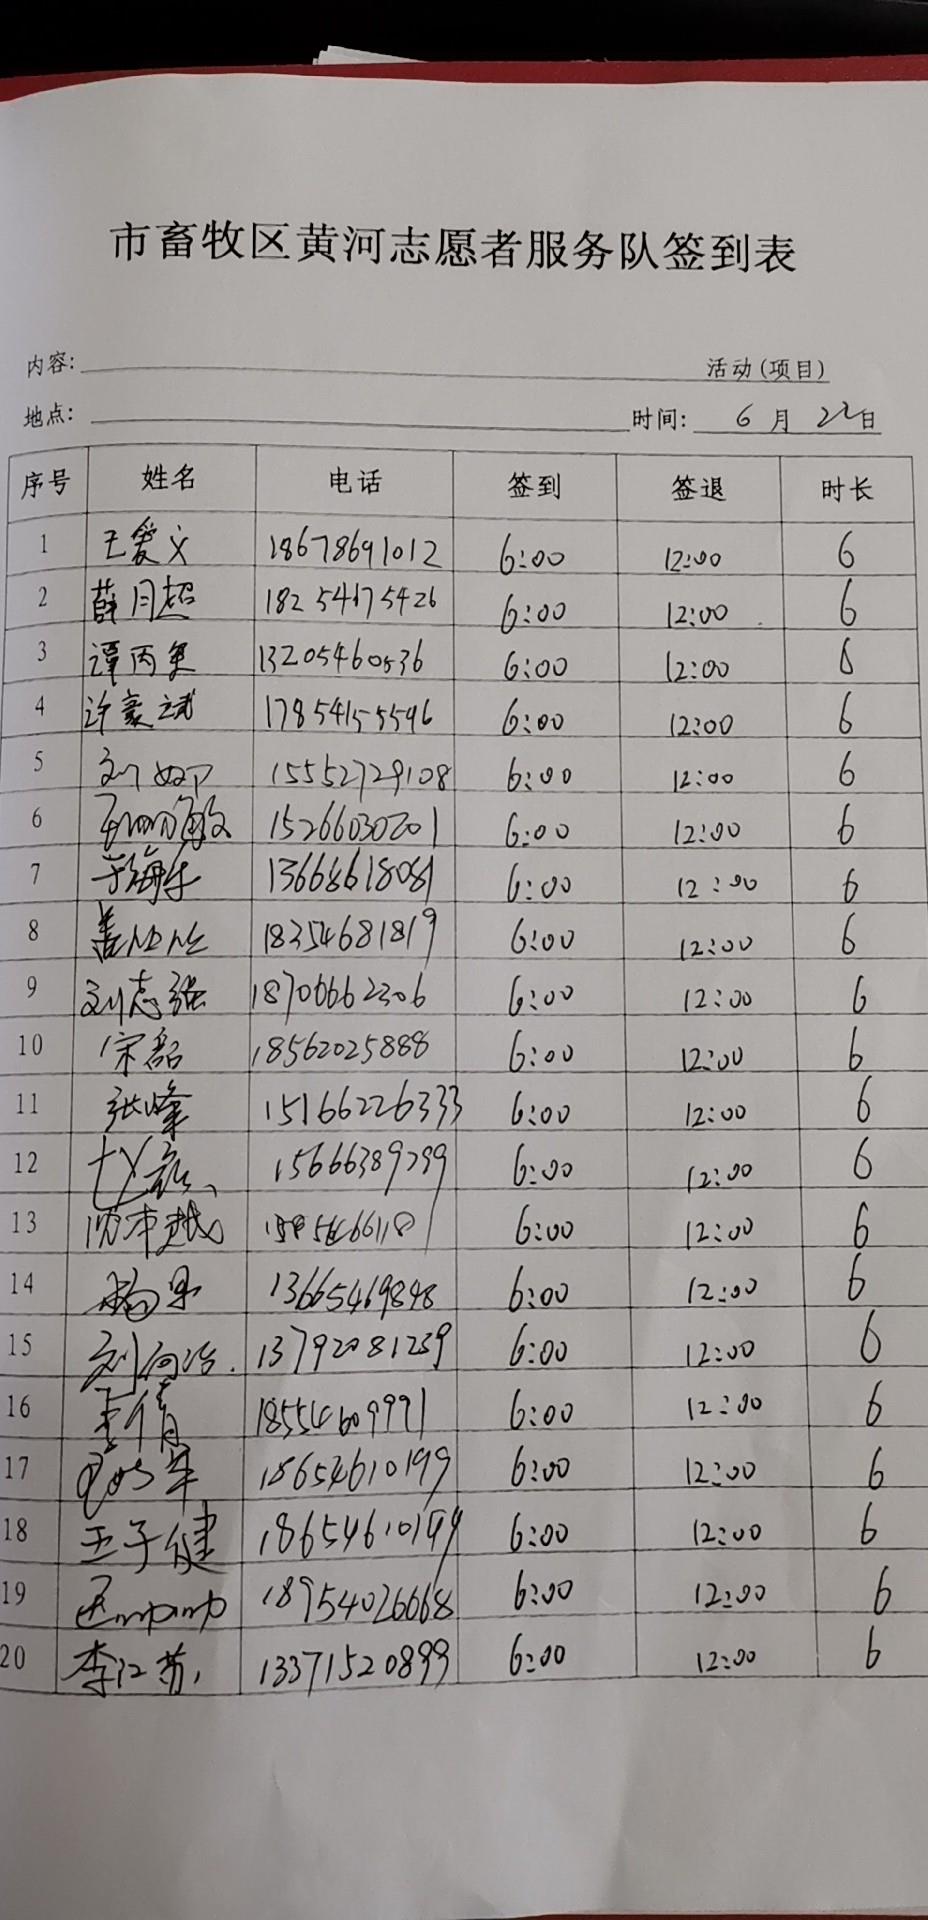 市畜牧区黄河志愿者服务队签到表
内容: 活动(项目)
地点: 时间: 6 月 22 日
序号 姓名 电话 签到 签退 时长
1 王爱义 18678691012 6:00 12:00 6
2 薛月超 18254175426 6:00 12:00 6
3 谭丙 13205460536 6:00 12:00 6
4 许豪斌 17854155596 6:00 12:00 6
5 15552729108 6:00 12:00 6
6 15266030201 6:00 12:00 6
7 13668618081 6:00 12:00 6
8 盖丛丛 18354681819 6:00 12:00 6
9 刘志强 18706662306 6:00 12:00 6
10 宋磊 18562025888 6:00 12:00 6
11 张峰 15166226333 6:00 12:00 6
12 15666389299 6:00 12:00 6
13 6:00 12:00 6
14 杨果 13665469848 6:00 12:00 6
15 刘向治 13792081239 6:00 12:00 6
16 李倩 18554609991 6:00 12:00 6
17 18654610199 6:00 12:00 6
18 王子健 18654610199 6:00 12:00 6
19 18954026668 6:00 12:00 6
20 李江苏 13371520899 6:00 12:00 6